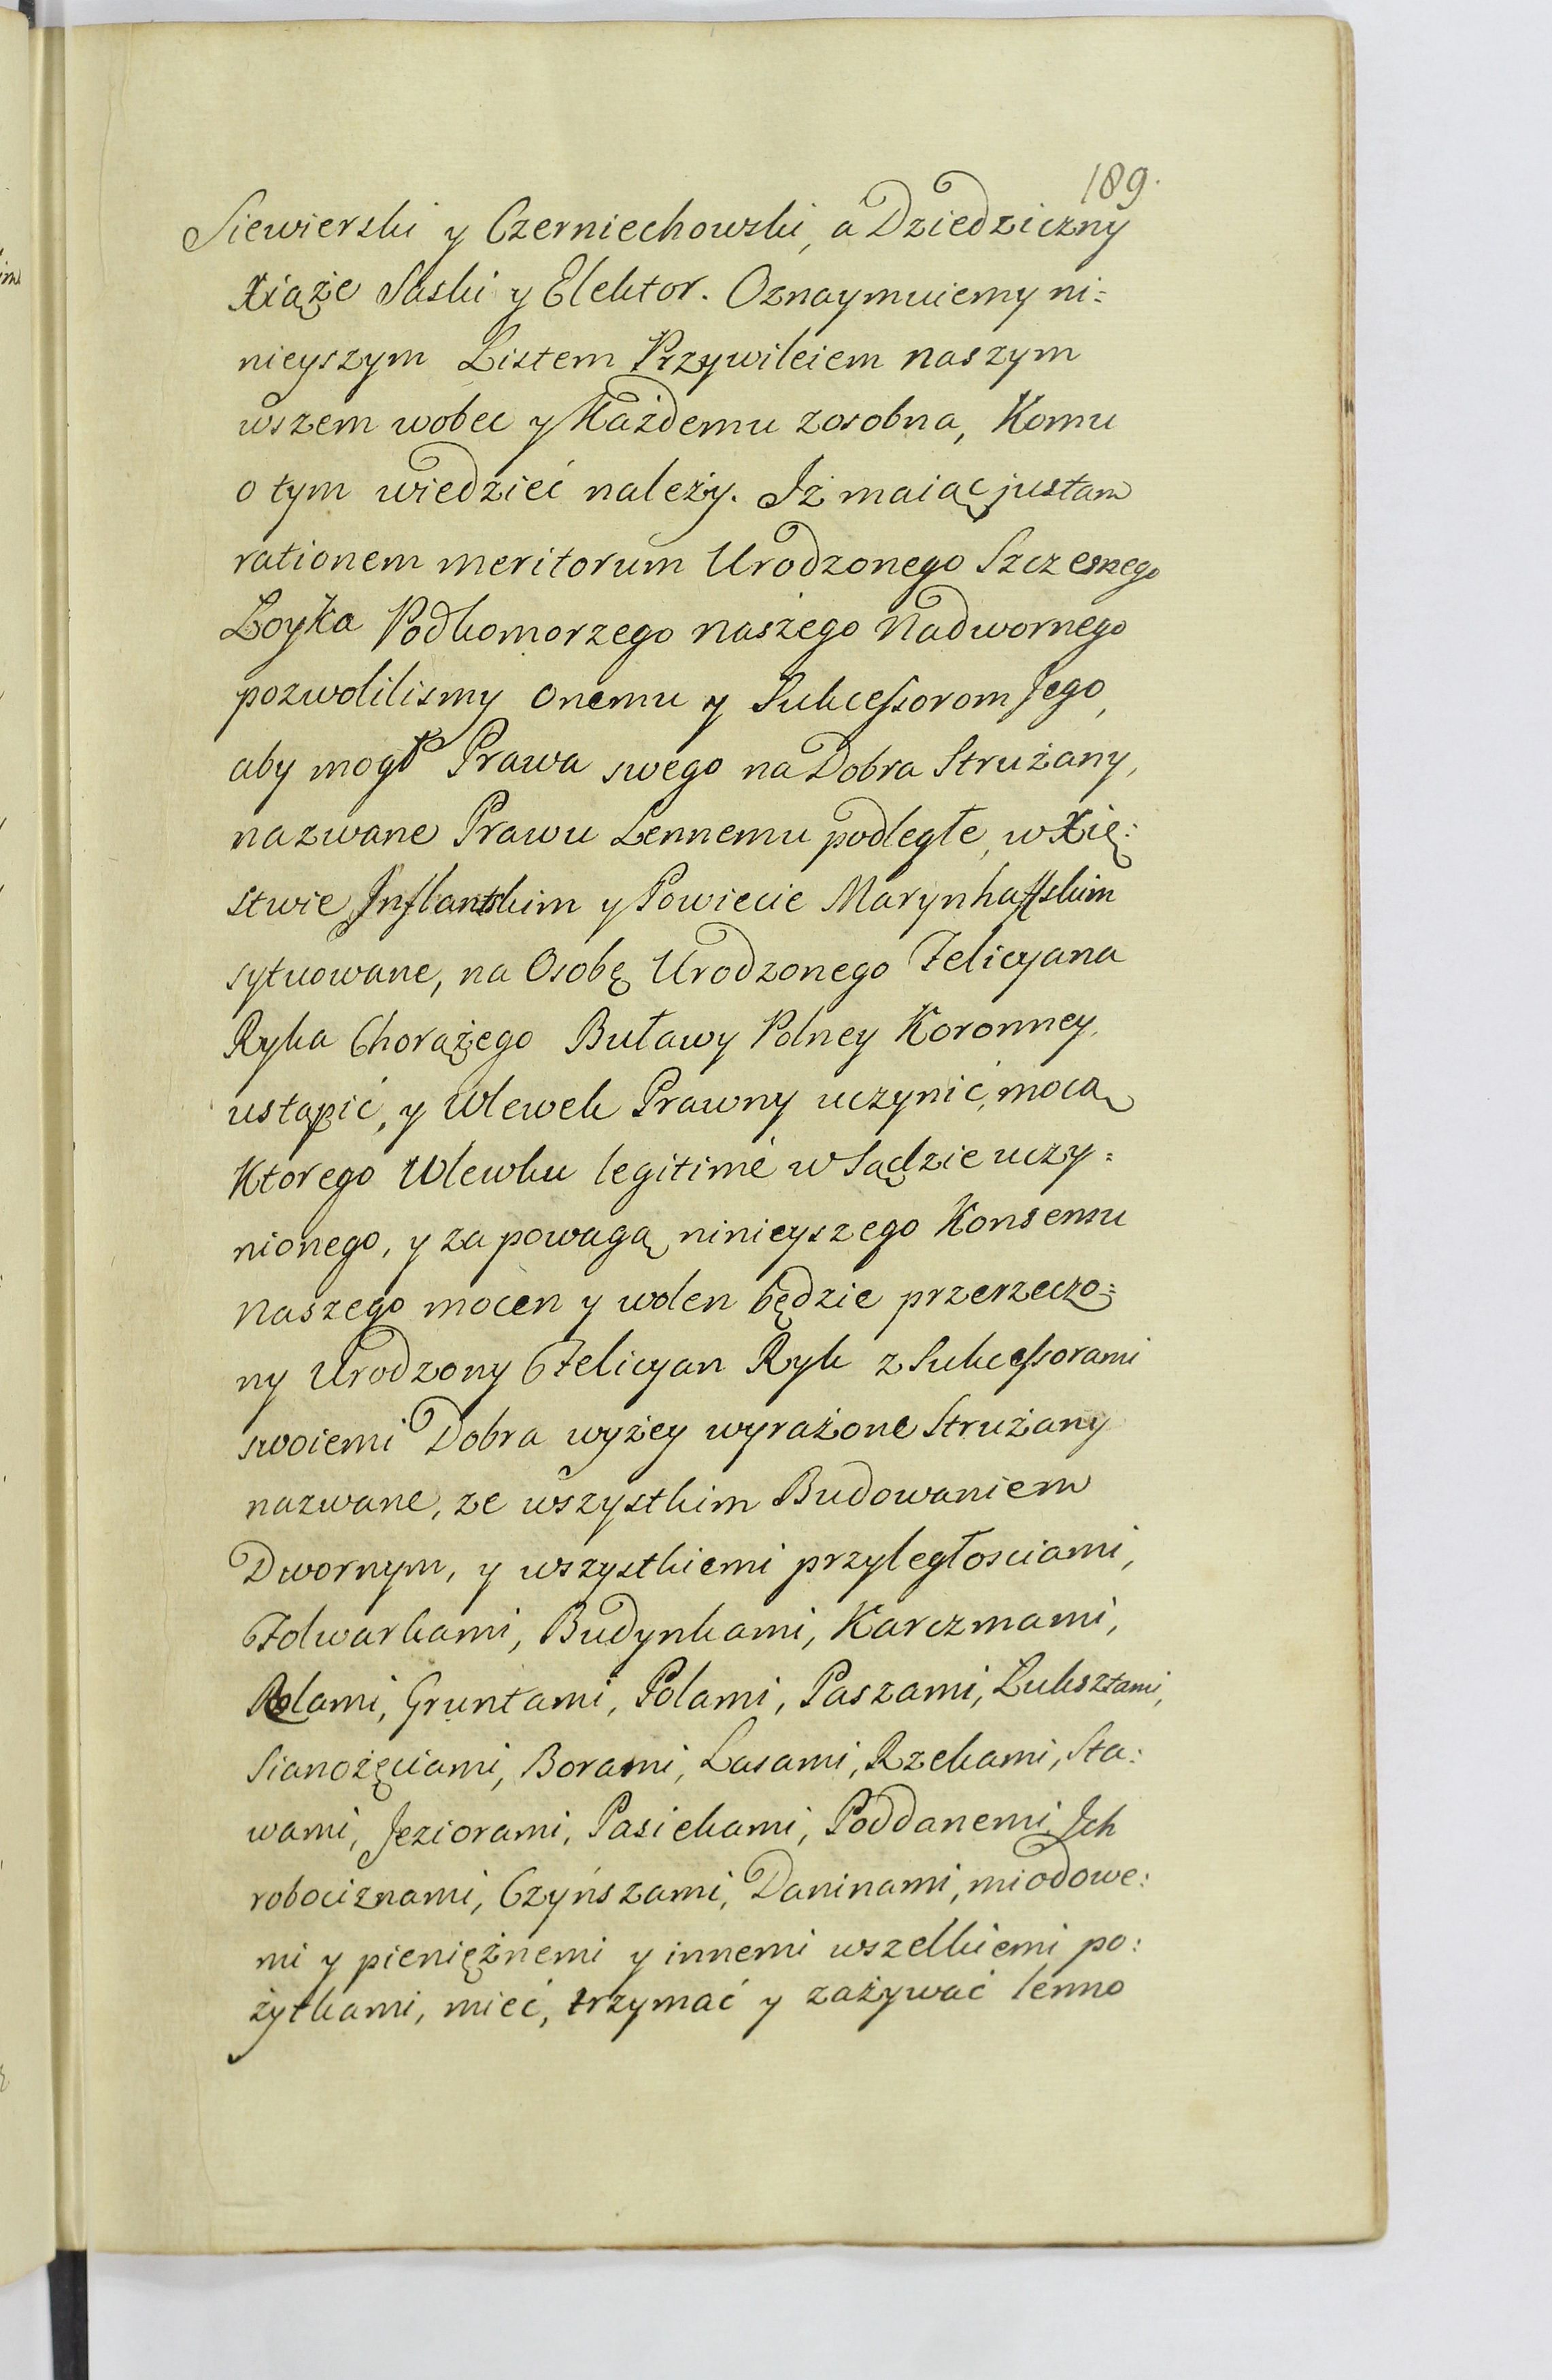 189.
Siewierski y Czerniechowski, a Dziedziczny
Xiąże Saski y Elektor. Oznaymuiemy ni=
nieyszym Listem Przywileiem naszym
wszem wobec y Każdemu zosobna, Komu
o tym wiedzieć należy. Iż maiąc justam
rationem meritorum Urodzonego Szczesnego
Łoyka Podkomorzego naszego Nadwornego
pozwolilismy onemu y Sukcessorom Jego,
aby mogł Prawa swego na Dobra Strużany,
nazwane Prawu Lennemu podległe, w Xię:
stwie Inflantskim y Powiecie Marynhaffskim
sytuowane, na Osobę Urodzonego Felicyana
Ryka Chorążego Buławy Polney Koronney,
ustąpić, y Wlewek Prawny uczynić, mocą
Ktorego Wlewku legitimè w Sądzie uczy=
nionego, y za powagą ninieyszego Konsensu
Naszego mocen y wolen będzie przerzeczo=
ny Urodzony Felicyan Ryk z Sukcessorami
swoiemi Dobra wyżey wyrażone Strużany
nazwane, ze wszystkim Budowaniem
Dwornym, y wszystkiemi przyległosciami,
Folwarkami, Budynkami, Karczmami,
Rolami, Gruntami, Polami, Paszami, Luksztami,
Sianożęciami, Borami, Lasami, Rzekami, Sta:
wami, Jeziorami, Pasiekami, Poddanemi, Ich
robociznami, Czyńszami, Daninami, miodowe:
mi y pieniężnemi y innemi wszelkiemi po:
żytkami, mieć, trzymać y zażywać lenno